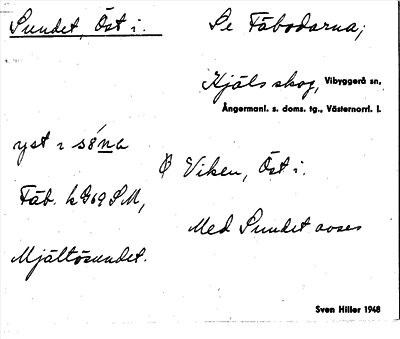 Sundet, Öst i.
Se Fäbodarna,
Kjäls skog, Vibyggerå sn,
Ångermanl. s. doms. tg., Västernorrl. l.
yst i
Ö Viken, Öst i.
Fäb. k G69 SM,
Med Sundet avses
Mjältösundet.
Sven Hiller 1948